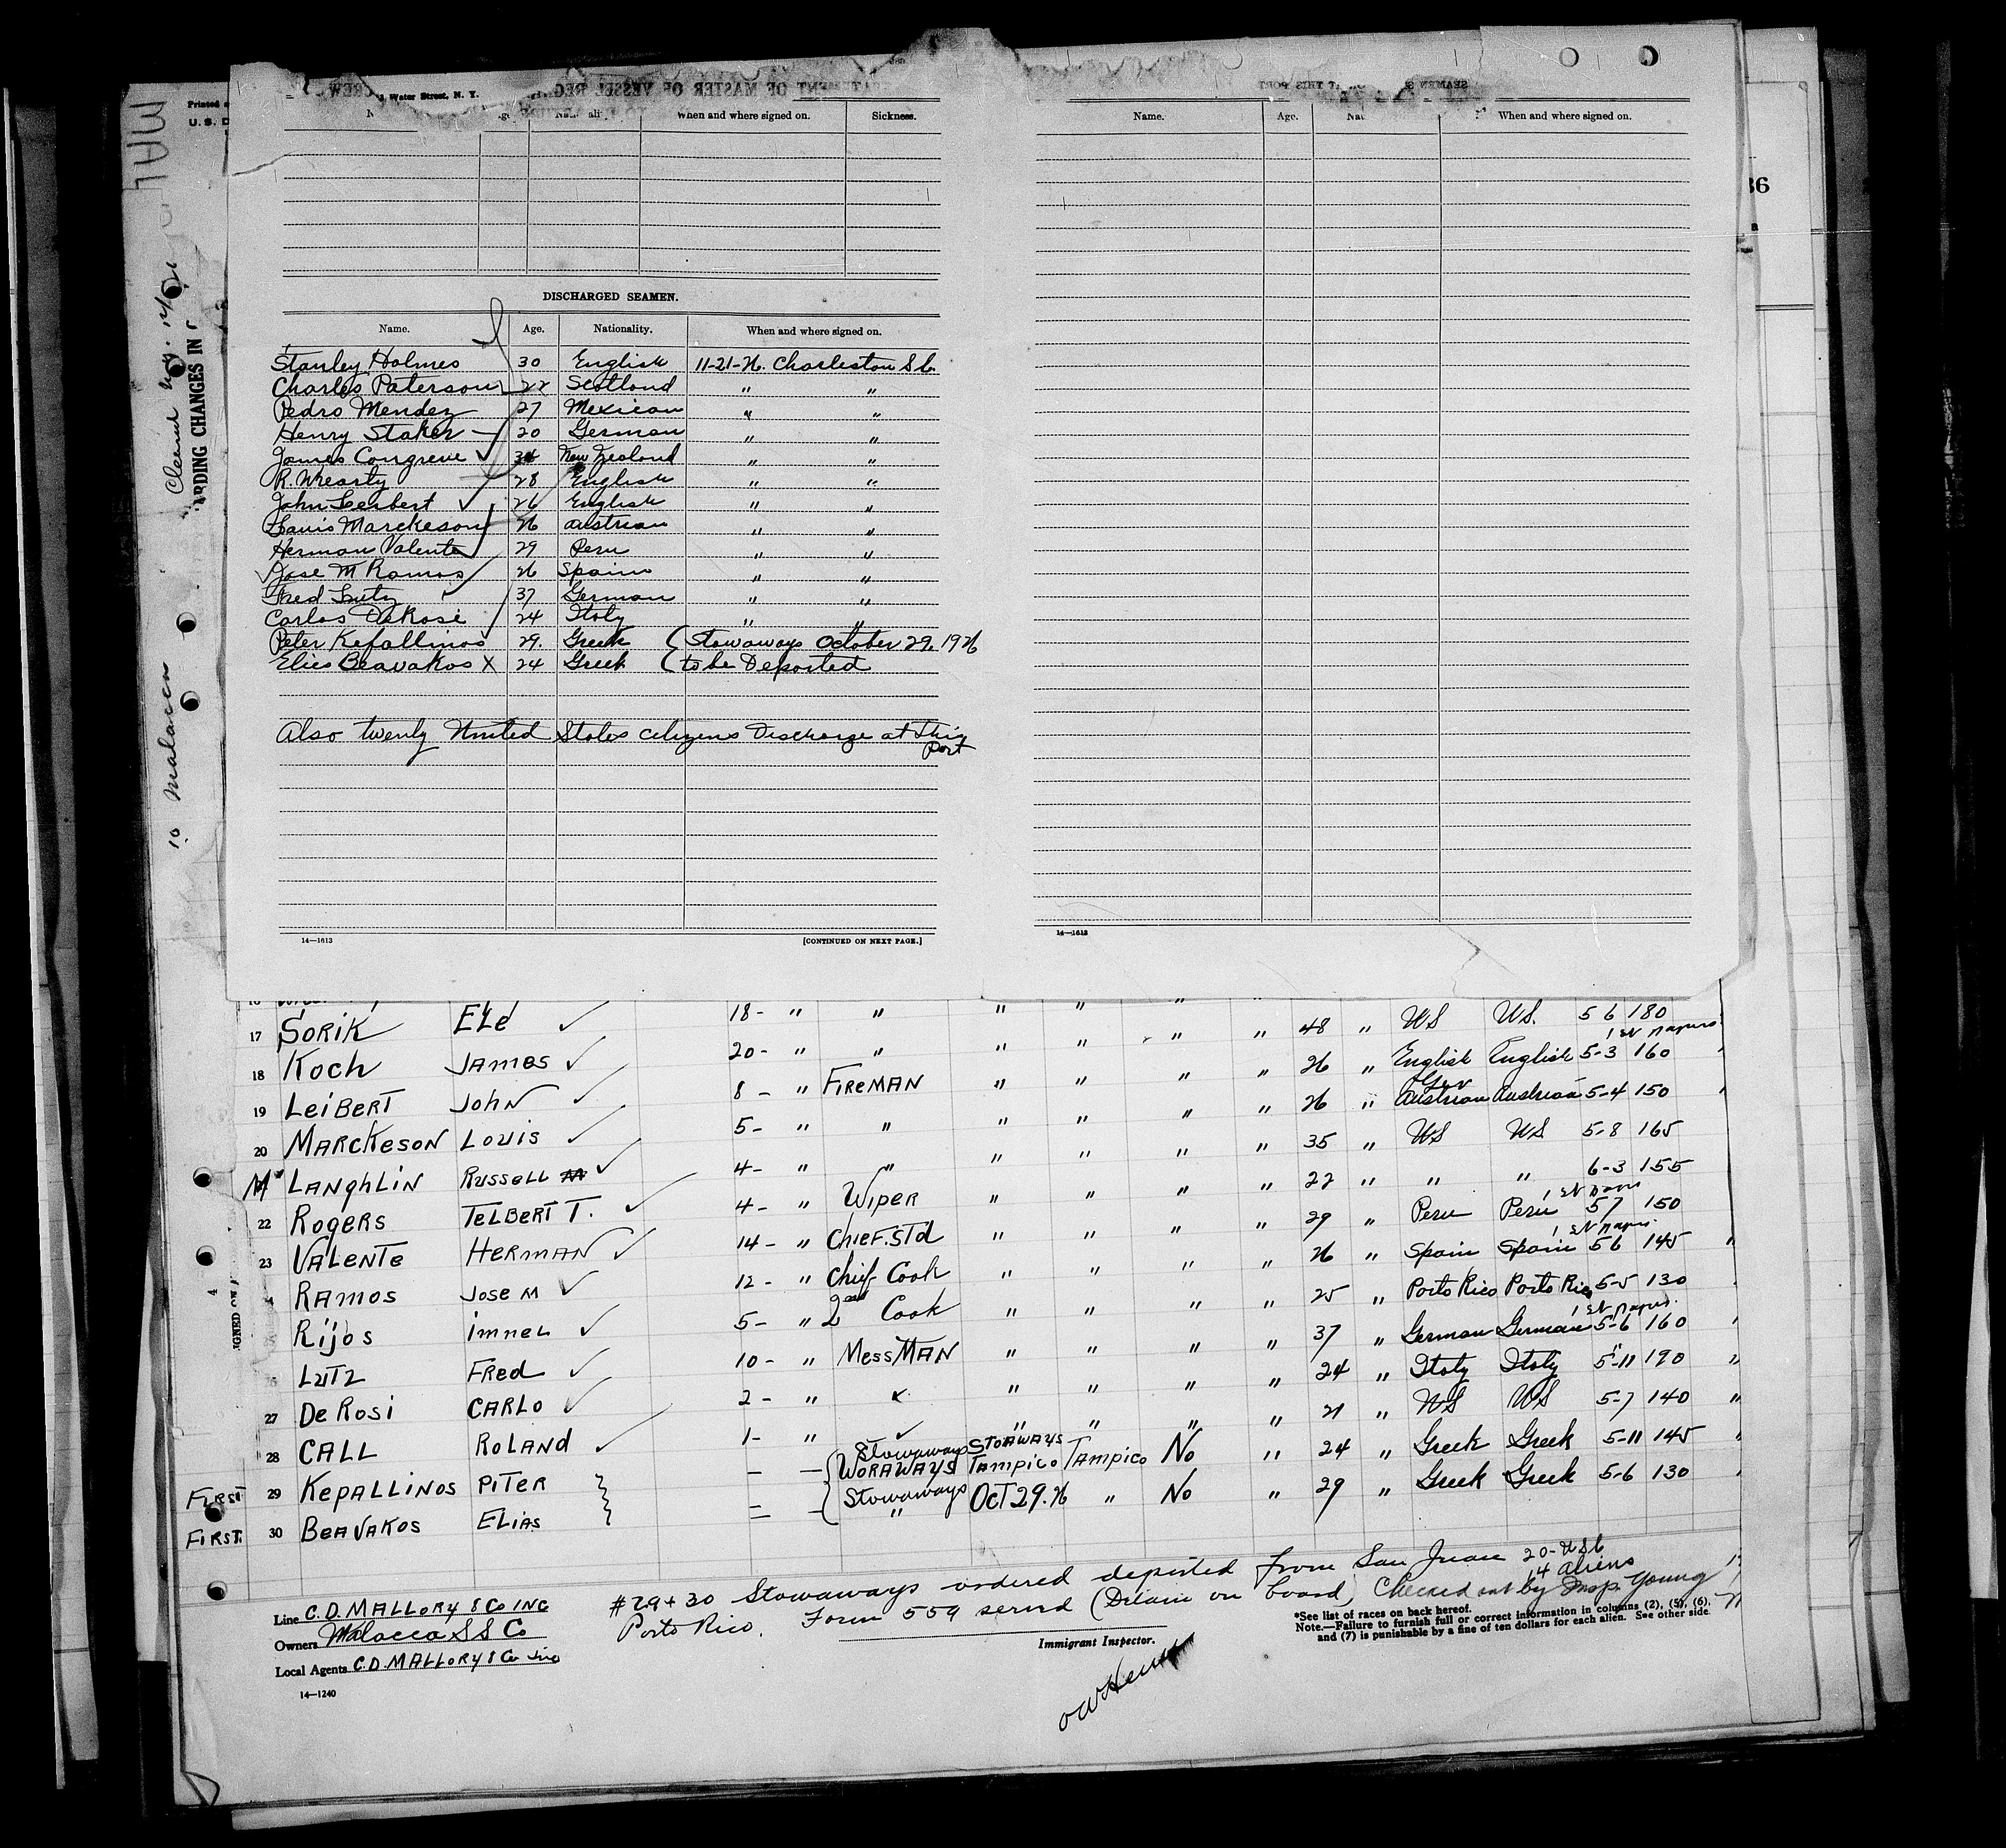 Water Street, N. Y.
When and where signed on. Sickness.
Name. Age. When and where signed on.
DISCHARGED SEAMEN.
Name. Age. Nationality. When and where signed on.
Stanley Holmes 30 English 11-21-26. Charleston S C.
Charles Paterson 22 Scotland " "
Pedro Mendez 27 Mexican " "
Henry Staker 20 German " "
James Congreve New Zealand " "
R. 28 English " "
John Leibert 26 English " "
Louis Marckeson 26 Austrian " "
Herman Valente 29 Peru " "
Jose M Ramos 26 Spain " "
Fred Lutz 37 German " "
Carlos DeRosi 24 Italy " "
Peter Kefallinos 29. Greek ( Stowaways October 29, 1926
Elies Beavakos X 24 Greek ( to be Deported
Also twenty United States citizens Discharge at This
Port
14—1613 [CONTINUED ON NEXT PAGE.]
14—1613
ARDING CHANGES IN
Malacca
17 SORIK ELE 18- " " " " " " 48 " US US. 5 6 180
18 KOCH JAMES 20- " " " " " " 26 " English English 5-3 160
19 LEIBERT JOHN 8- " FIREMAN " " " " 26 " Austrian Austrian 5-4 150
20 MARCKESON LOUIS 5- " " " " " " 35 " US US 5-8 165
Mc LANGHLIN RUSSELL 4- " " " " " " 22 " " " 6-3 155
22 ROGERS TELBERT T. 4- " WIPER " " " " 29 " Peru Peru 5 7 150
23 VALENTE HERMAN 14- " CHIEF. STD " " " " 26 " Spain Spain 5 6 145
RAMOS JOSE M 12- " Chief Cook " " " " 25 " Porto Rico Porto Rico 5-5 130
RIJOS IMNEL 5- " 2nd Cook " " " " 37 " German German 5-6 160
LUTZ FRED 10- " MESSMAN " " " " 24 " Italy Italy 5-11 190
27 DE ROSI CARLO 2- " " " " " 21 " US US 5-7 140
28 CALL ROLAND 1- " " " " " 24 " Greek Greek 5-11 145
FIRST 29 KEPALLINOS PITER — — Stowaways WORAWAYS STOAWAYS TAMPICO TAMPICO No " 29 " Greek Greek 5-6 130
FIRST. 30 BEAVAKOS ELIAS — — Stowaways " OCT 29. 26 " No
#29 + 30 Stowaways ordered deported from San Juan
Porto Rico. Form 559 served (Detain on board)
20-USC
14 aliens
Checked out by Insp. Young
Line C. D. MALLORY & CO INC
Owners Malacca S S Co
Local Agents C. D. MALLORY & Co Inc
14—1240
Immigrant Inspector.
*See list of races on back hereof.
Note.—Failure to furnish full or correct information in columns (2), (5), (6),
and (7) is punishable by a fine of ten dollars for each alien. See other side.